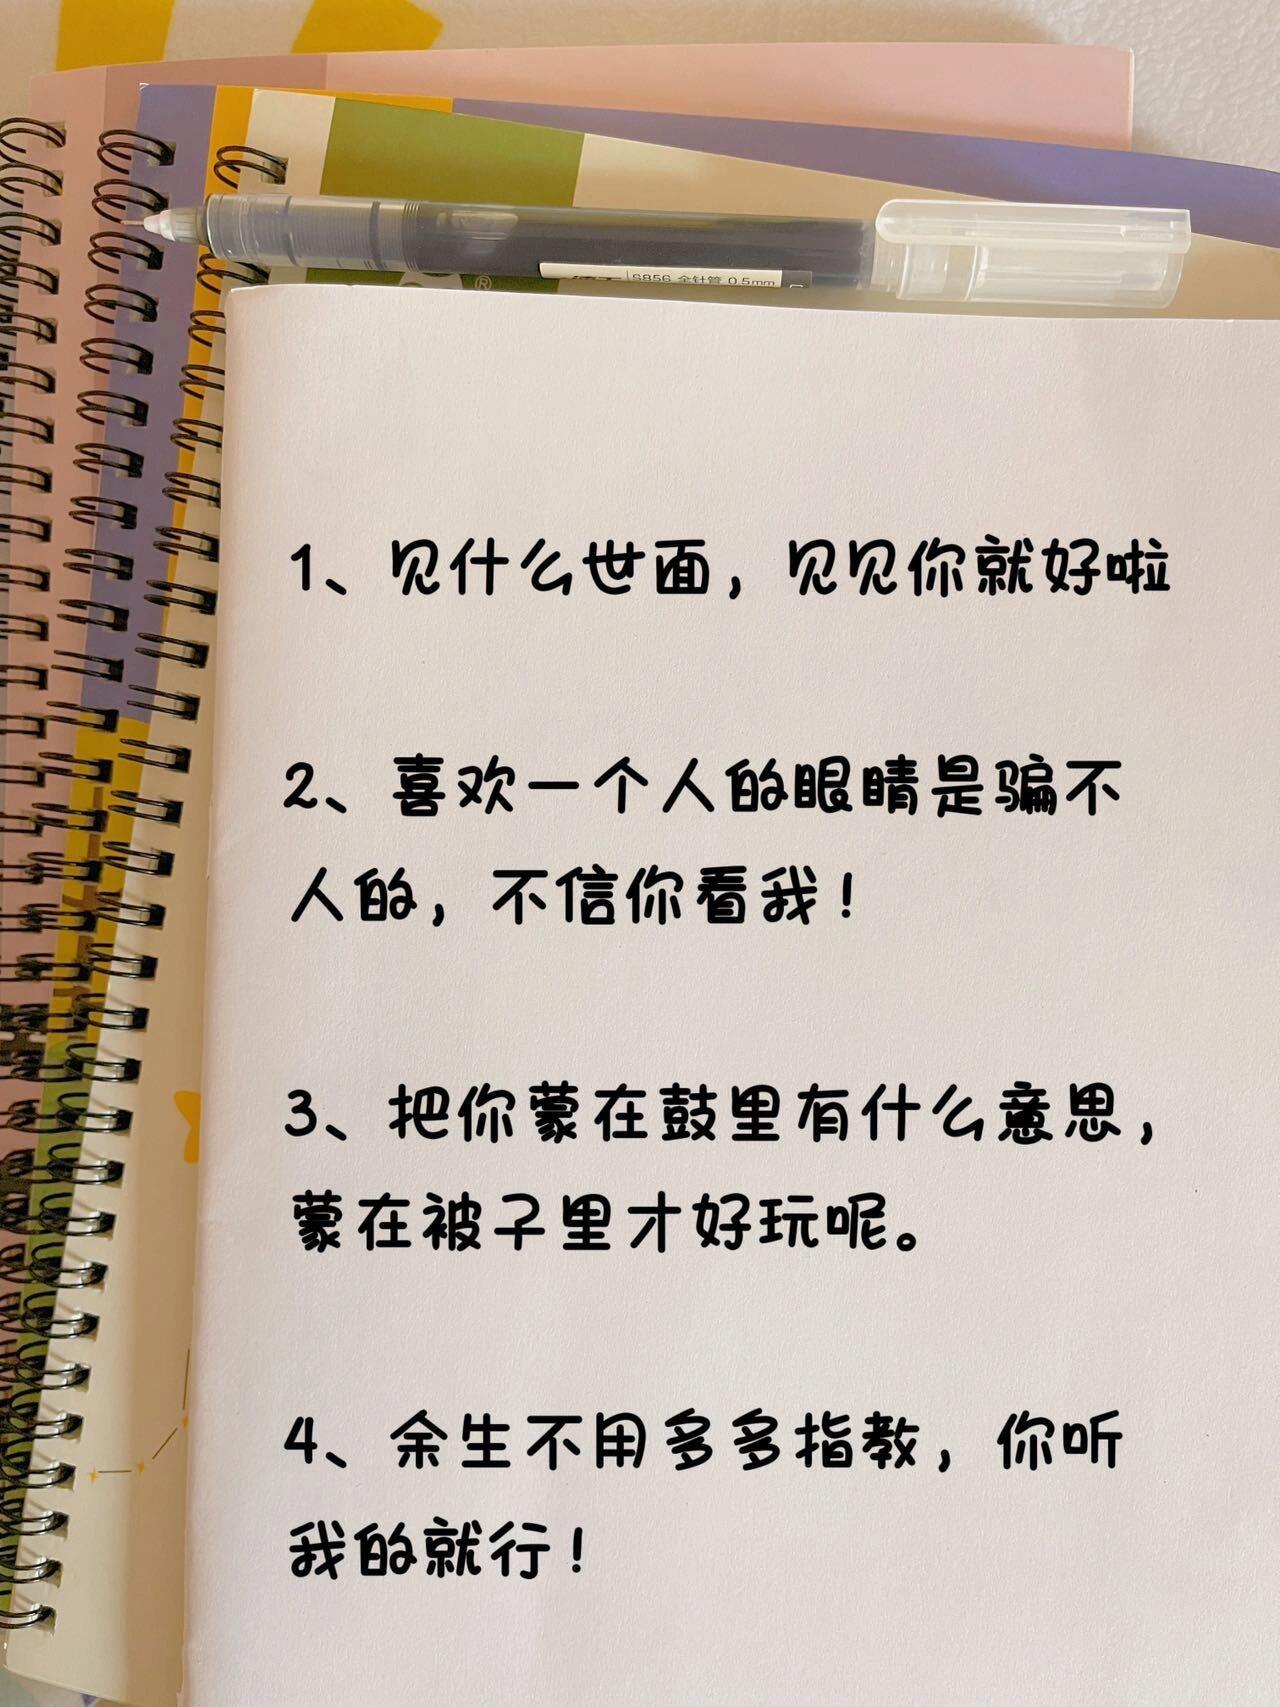 ®
S856 全针管 0.5mm
1、见什么世面，见见你就好啦
2、喜欢一个人的眼睛是骗不
人的，不信你看我！
3、把你蒙在鼓里有什么意思，
蒙在被子里才好玩呢。
4、余生不用多多指教，你听
我的就行！